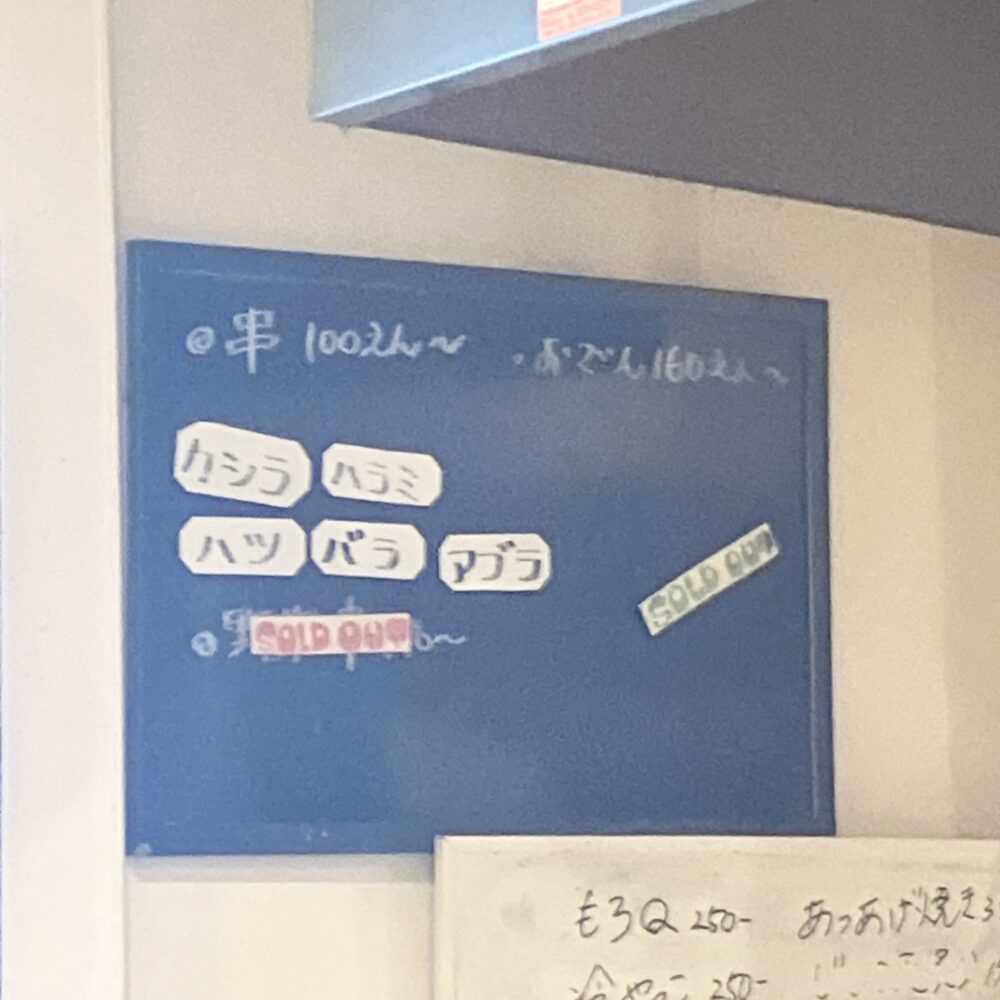 ◎串 100えん〜
・おでん 160えん〜
カシラ ハラミ
ハツ バラ アブラ
SOLD OUT
SOLD OUT
もろQ 250-
あつあげ焼き
冷やっこ 250-